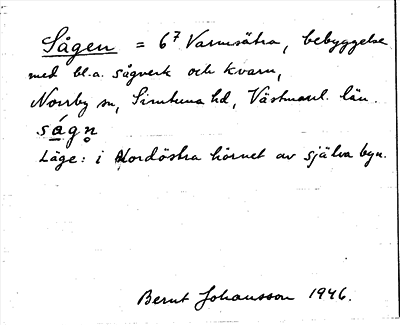 Sågen = 6⁷ Varmsätra, bebyggelse
med bl.a. sågverk och kvarn,
Norrby sn, Simtuna hd, Västmanl. län.
ság̀n̥
Läge: i Nordöstra hörnet av själva byn.
Bernt Johansson 1946.